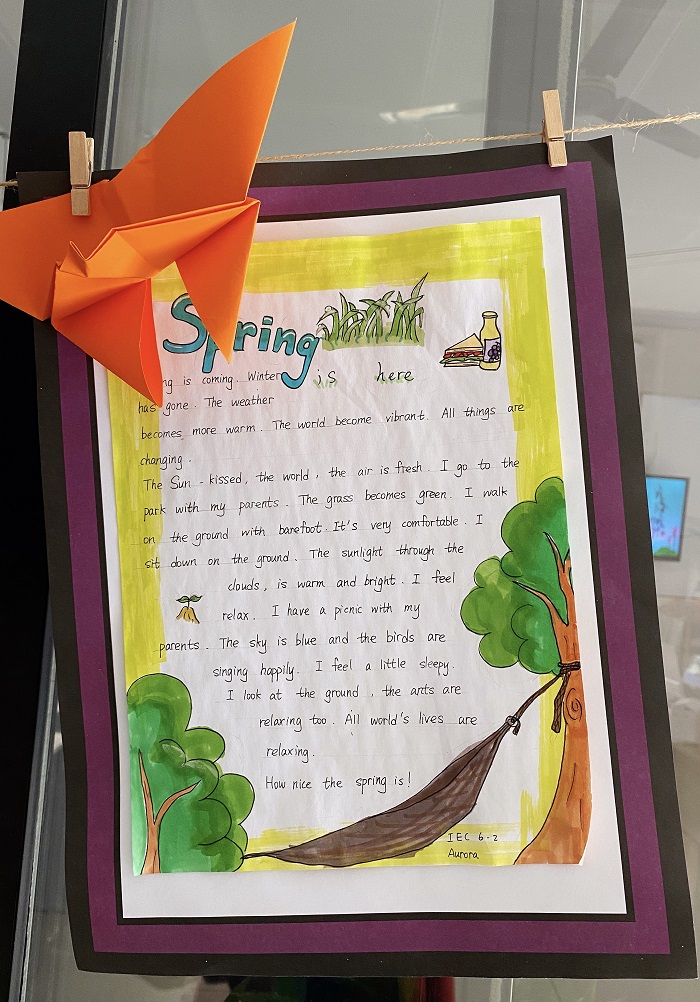 Spring
is here
ng is coming. Winter
has gone. The weather
becomes more warm. The world become vibrant. All things are
changing.
The Sun - kissed, the world, the air is fresh. I go to the
park with my parents. The grass becomes green. I walk
on the ground with barefoot. It's very comfortable. I
sit down on the ground. The sunlight through the
clouds, is warm and bright. I feel
relax. I have a picnic with my
parents. The sky is blue and the birds are
singing happily. I feel a little sleepy.
I look at the ground, the arts are
relaxing too. All world's lives are
relaxing.
How nice the spring is!
IEC 6-2
Aurora